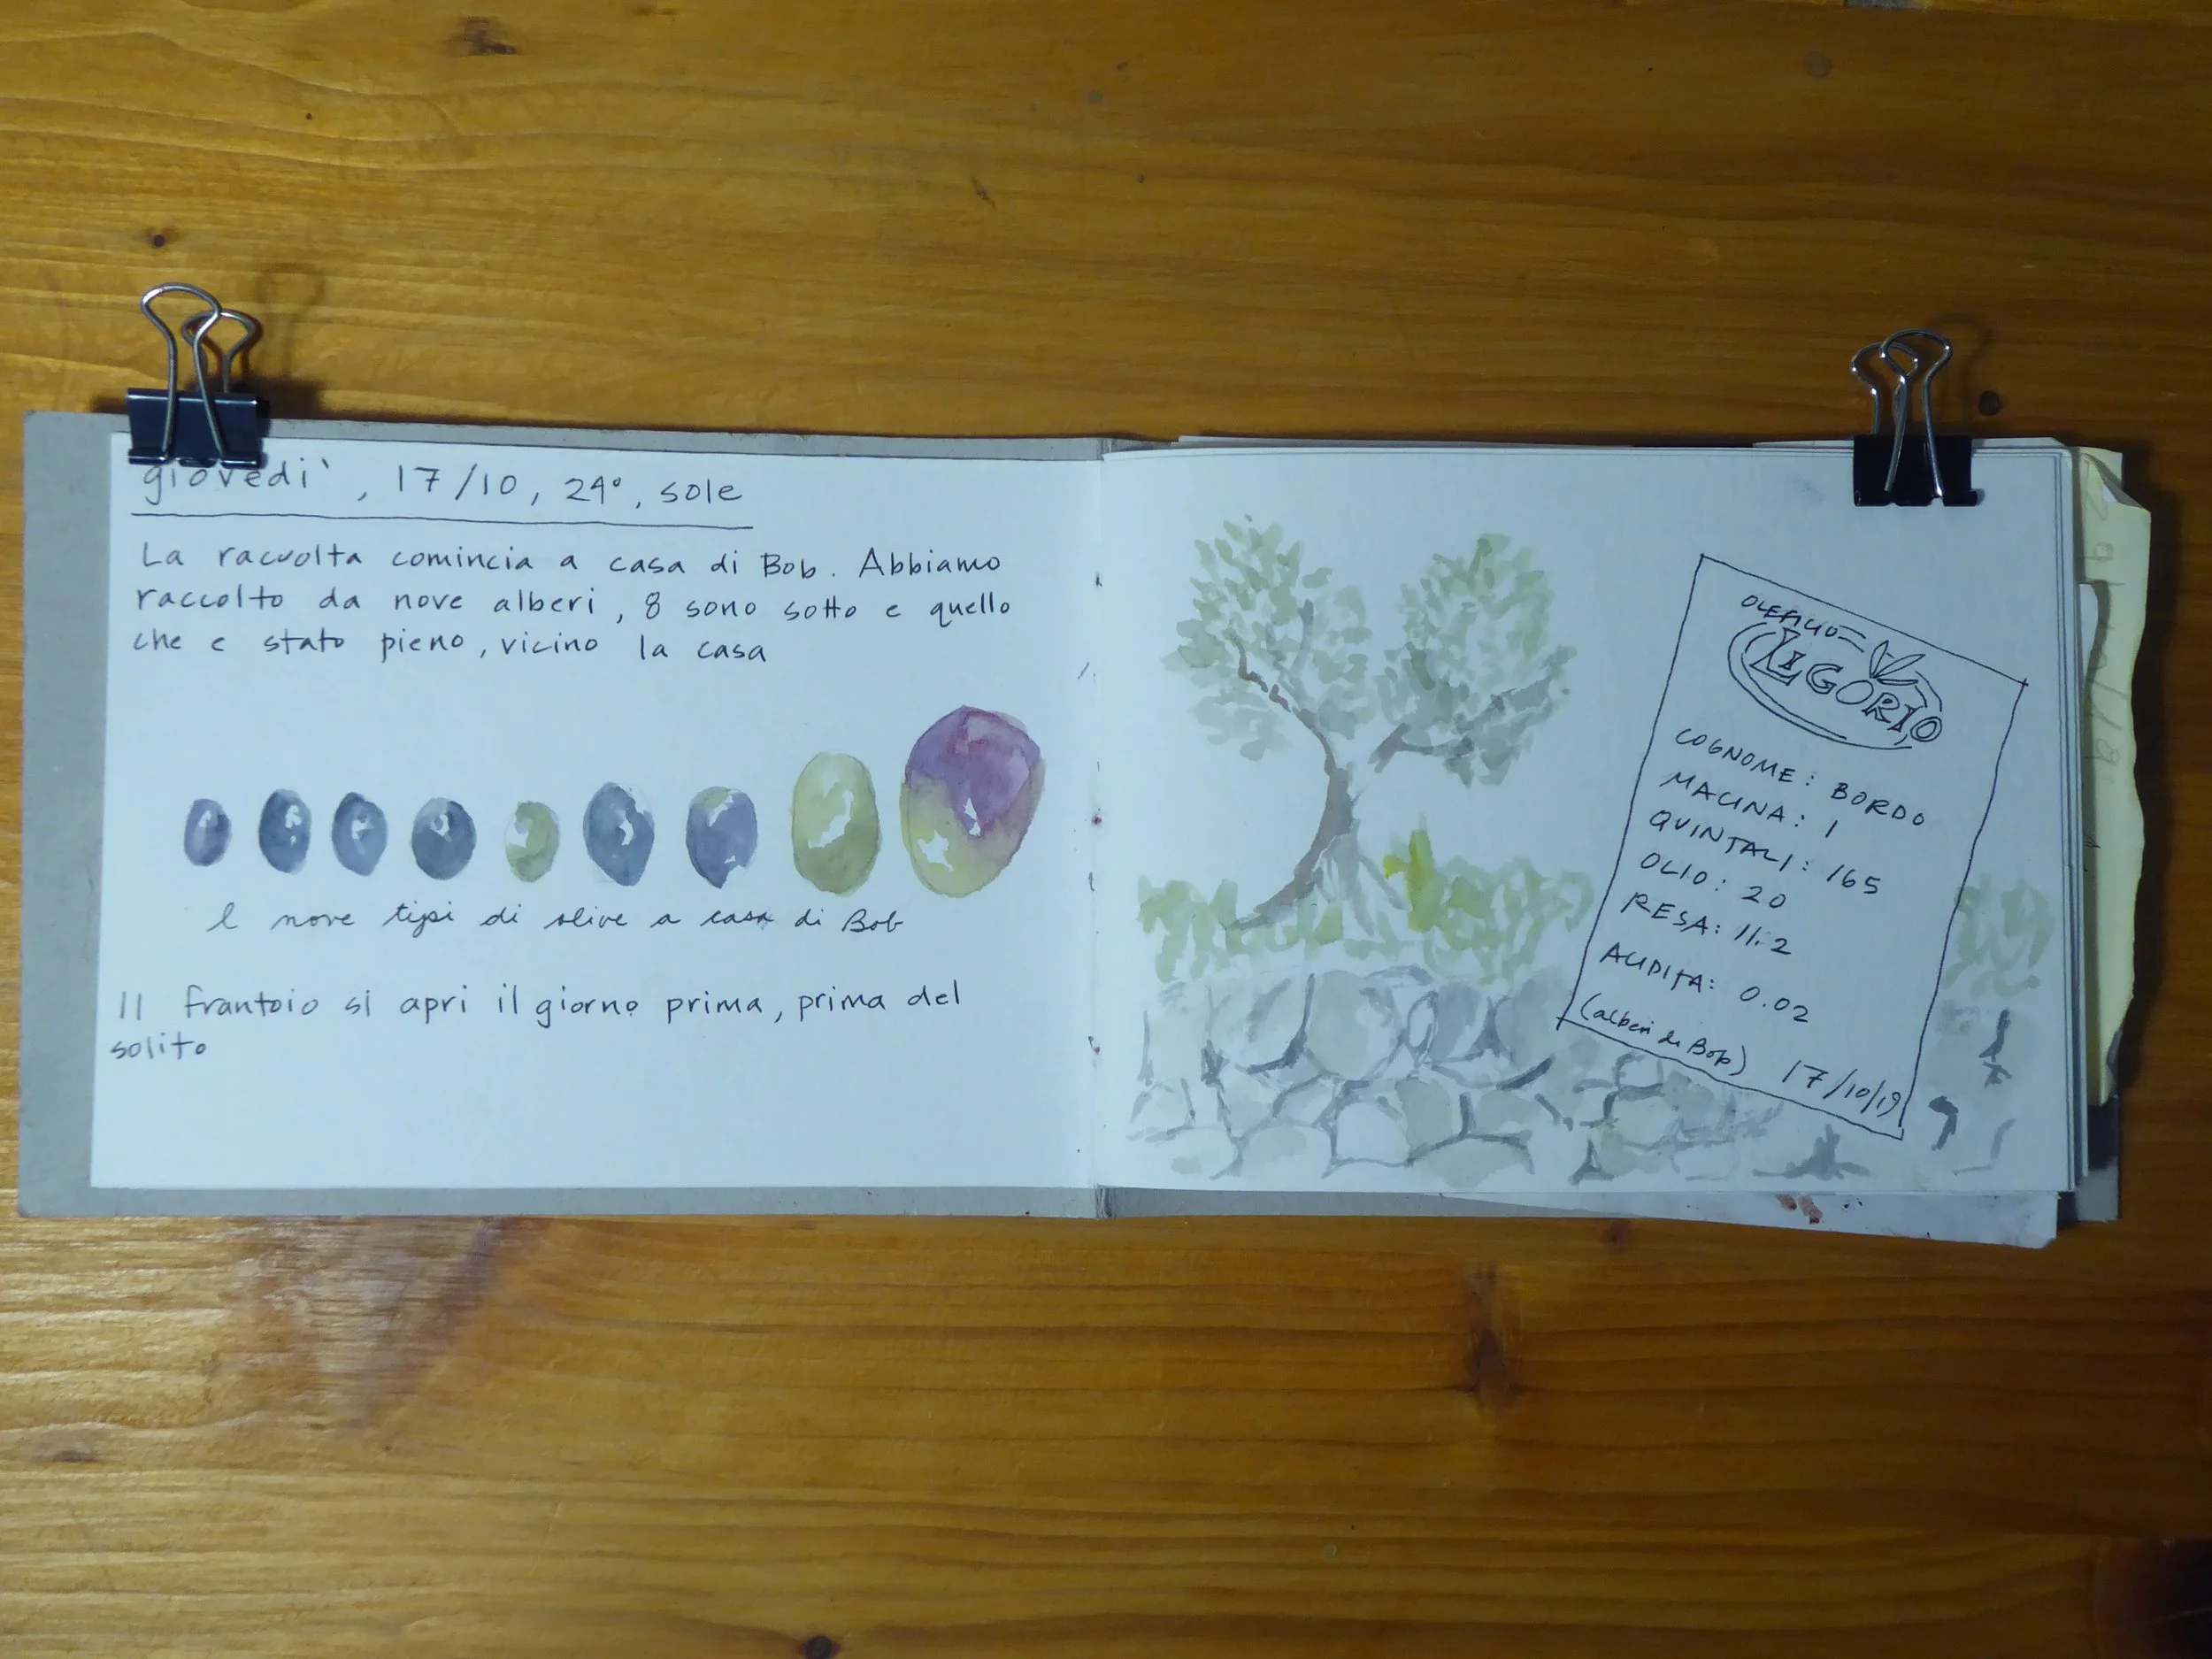 giovedì, 17/10, 24°, sole
La racvolta comincia a casa di Bob. Abbiamo
raccolto da nove alberi, 8 sono sotto e quello
che e stato pieno, vicino la casa
I nove tipi di olive a casa di Bob
Il frantoio si apri il giorno prima, prima del
solito
OLEFICIO
LIGORIO
COGNOME: BORDO
MACINA: 1
QUINTALI: 165
OLIO: 20
RESA: 11.2
ACIDITA: 0.02
(alberi di Bob) 17/10/19